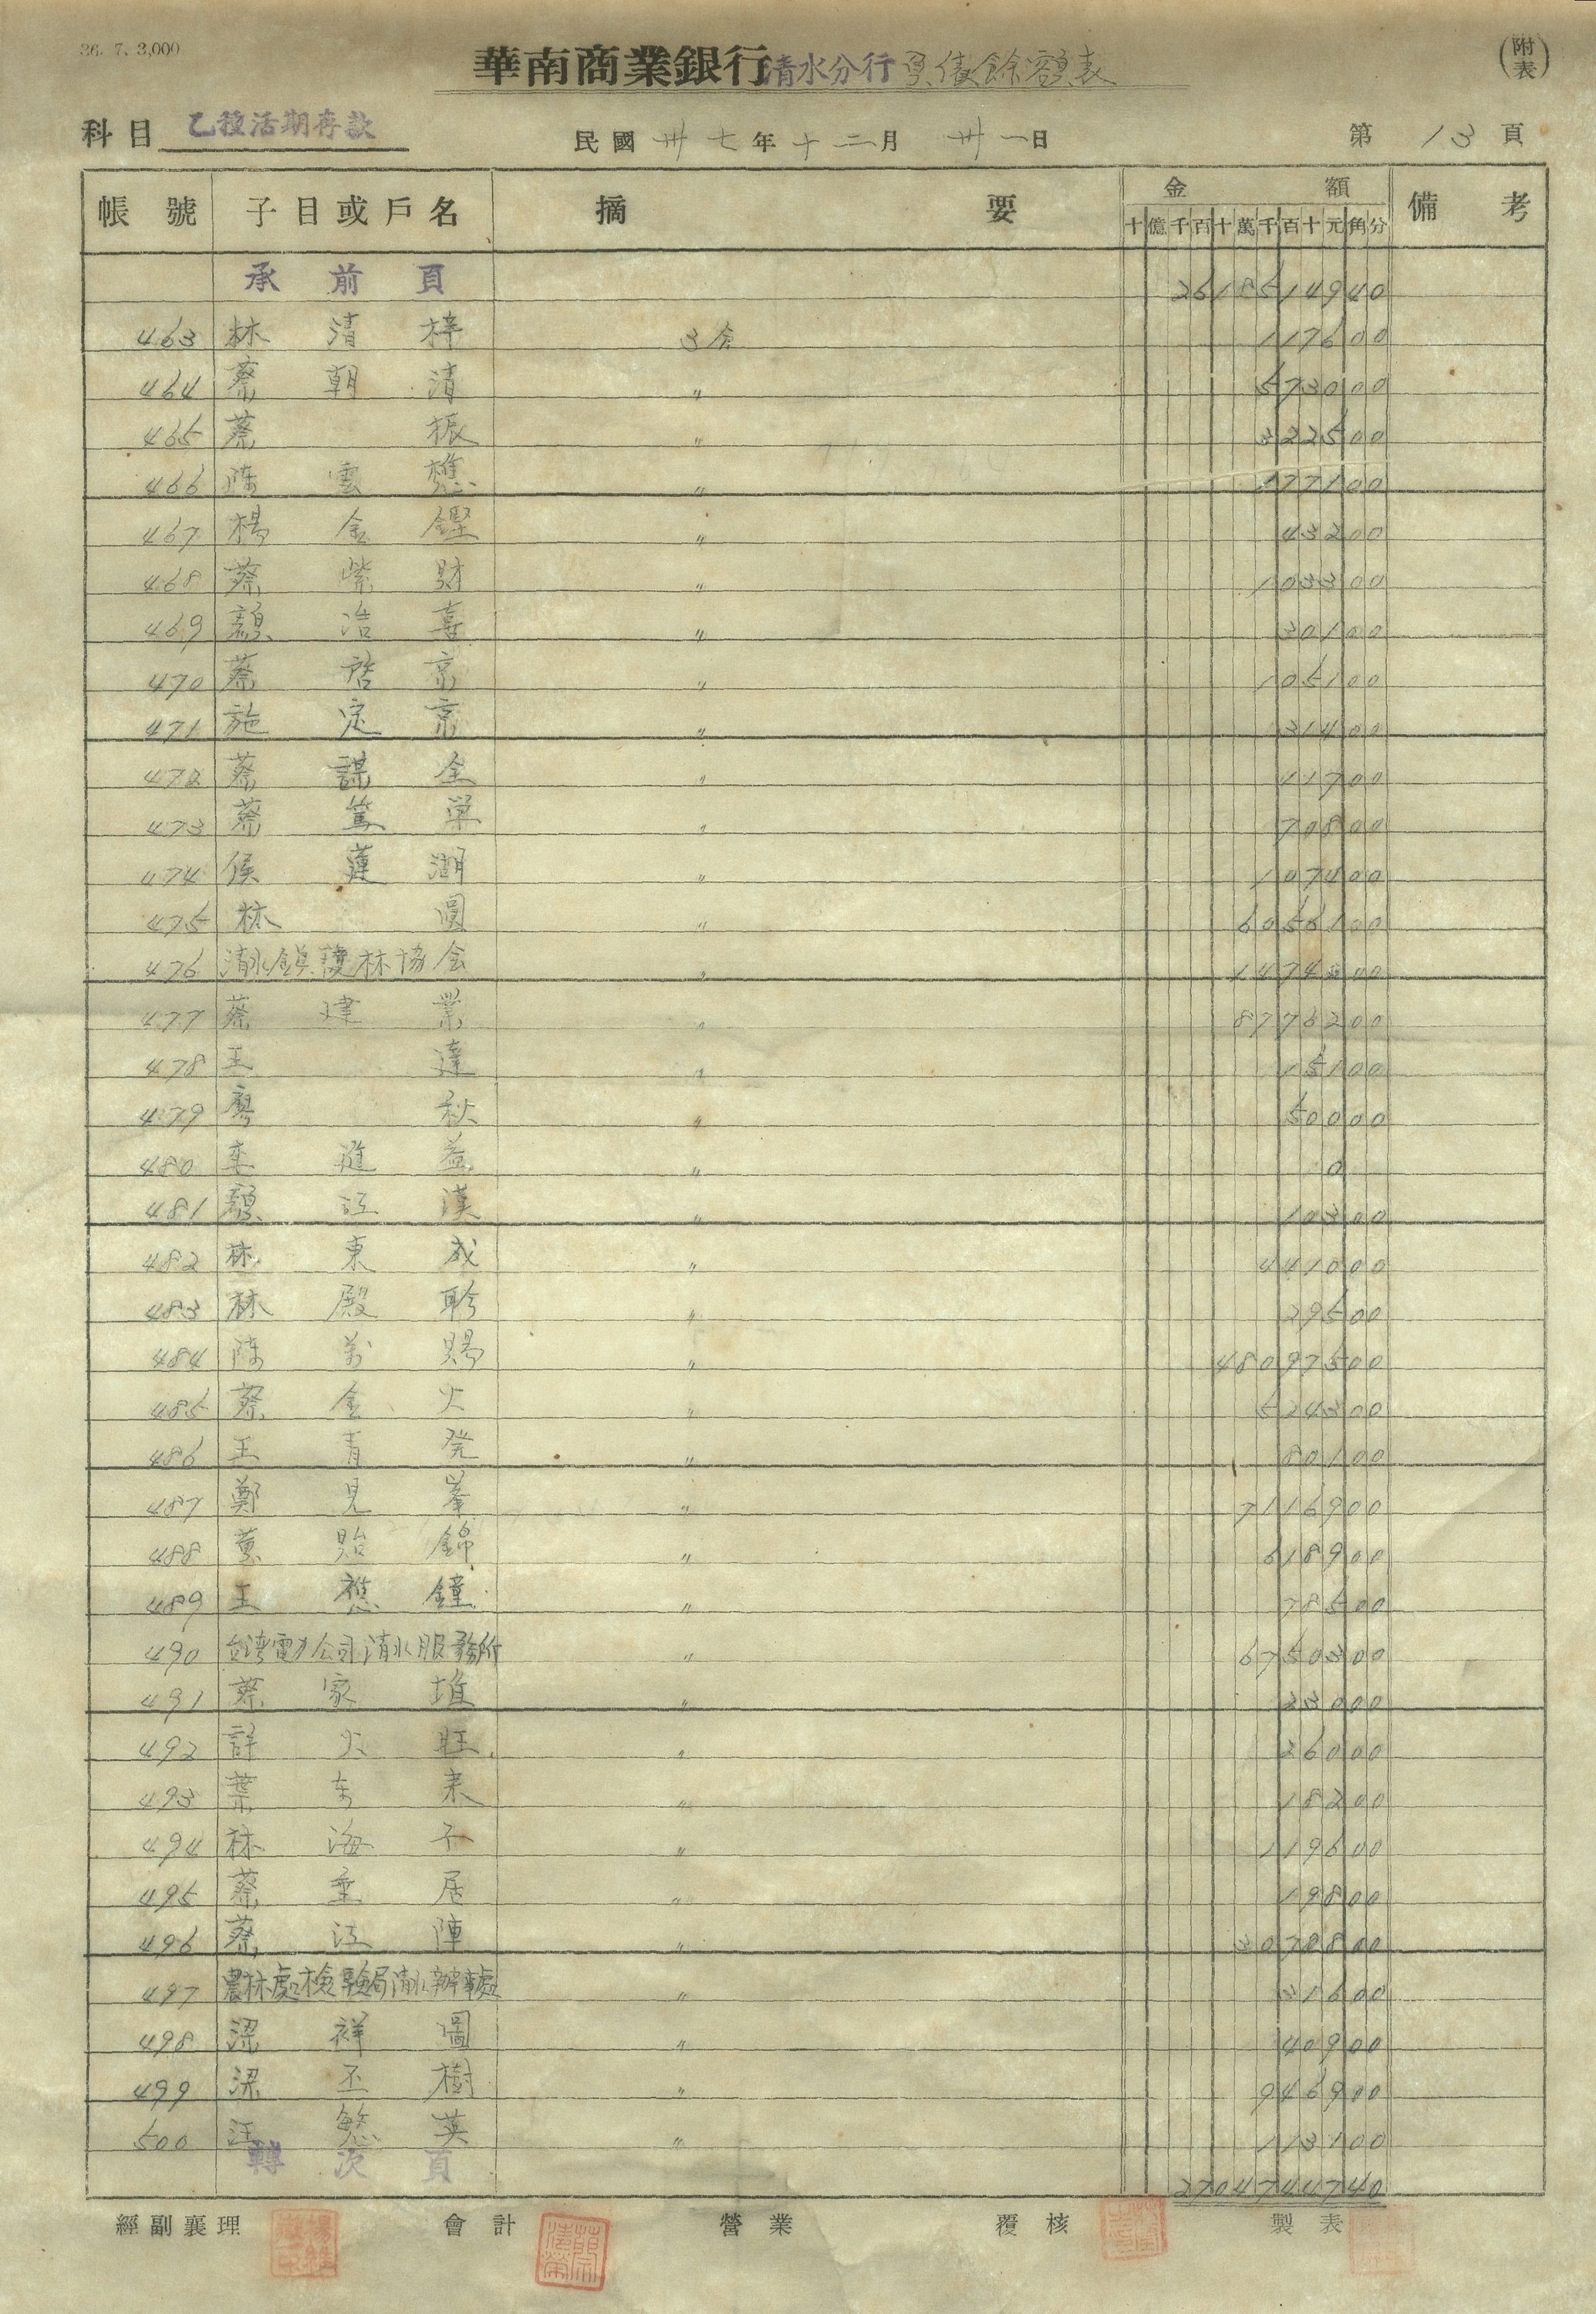 36. 7、3,000
華南商業銀行清水分行負債餘額表
(附表)
科目 乙種活期存款 民國 卅七年 十二月 卅一日 第 13 頁
帳號 子目或戶名 摘要 金額 備考
十億千百十萬千百十元角分
承前頁 2618514940
463 林清梓 3仝 117600
464 蔡朝清 〃 573000
465 蔡振 〃 322500
466 陳雲樵 〃 177100
467 楊金鏗 〃 43200
468 蔡紫財 〃 103300
469 顏浩喜 〃 30100
470 蔡啓京 〃 105100
471 施定京 〃 31400
472 蔡謀全 〃 41700
473 蔡篤 〃 70800
474 侯蓮湖 〃 107400
475 林圓 〃 6056100
476 清水鎮護林協会 〃
477 蔡建業 〃 8776200
478 王達 〃 15100
479 廖秋 〃 50000
480 益 〃 0
481 顏江漢 〃 10300
482 林東成 〃 441000
483 林殿聆 〃 29500
484 陳萬賜 〃 48097500
485 蔡金火 〃 524300
486 王青発 〃 80100
487 鄭見峯 〃 7116900
488 貽錦 〃 618900
489 王鐘 〃 78500
490 台湾電力公司清水服務所 〃 6750300
491 蔡家堆 〃 33000
492 許火旺 〃 26000
493 葉東来 〃 18200
494 林海 〃 119600
495 蔡垂居 〃 19800
496 蔡江陣 〃 3078800
497 農林處檢驗局清水辦事處 〃 31600
498 梁祥圖 〃 40900
499 梁丕樹 〃 946900
500 汪愍英 〃 113100
轉次頁 2704744740
經副襄理 會計 營業 覆核 製表